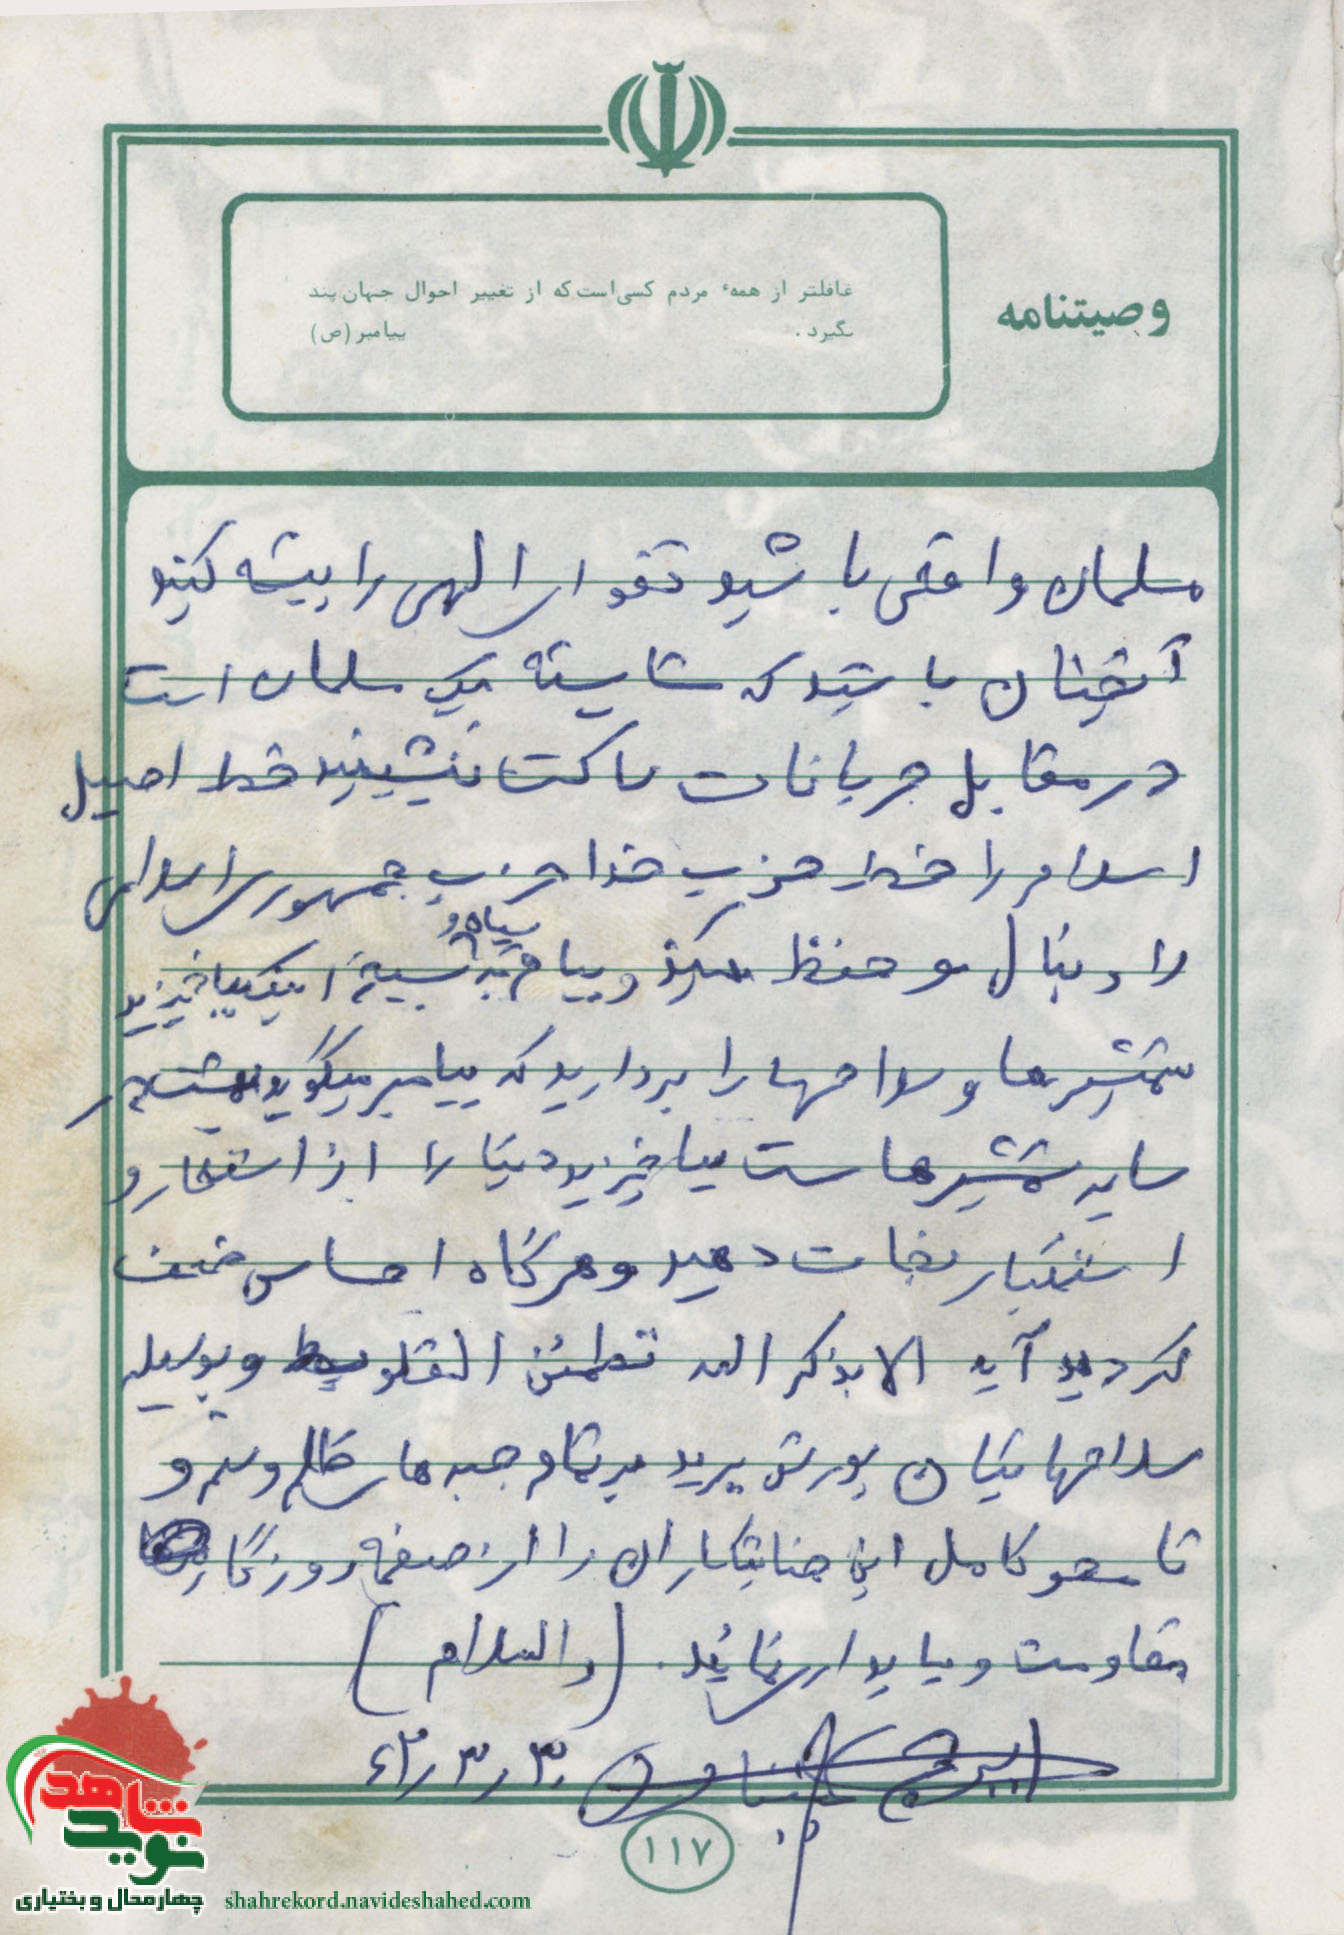 وصیتنامه
غافلتر از همهٔ مردم کسی‌است که از تغییر احوال جهان پند
نگیرد. پیامبر (ص)
مسلمان واقعی باشید تقوای الهی را پیشه کنید
آنچنان باشید که شایسته یک مسلمان است
در مقابل جریانات ساکت ننشینید خط اصیل
اسلام را خط حزب خدا حزب جمهوری اسلامی
را دنبال و حفظ کنید و پیام به سپاه و بسیج اینکه بپاخیزید
شمشیرها و سلاحها را بردارید که پیامبر میگوید بهشت در
سایه شمشیرهاست بپاخیزید دنیا را از استعمار و
استکبار نجات دهید و هرگاه احساس ضعف
کردید آیه الا بذکر الله تطمئن القلوب و بوسیله
سلاحهایتان یورش برید بر تمام جبهه های ظلم و ستم و
تا محو کامل این جنایتکاران را از صفحه روزگار
مقاومت و پایداری نمائید. (والسلام)
ایرج
۶۲٫۳٫۳۰
۱۱۷
نوید شاهد
چهارمحال و بختیاری
shahrekord.navideshahed.com